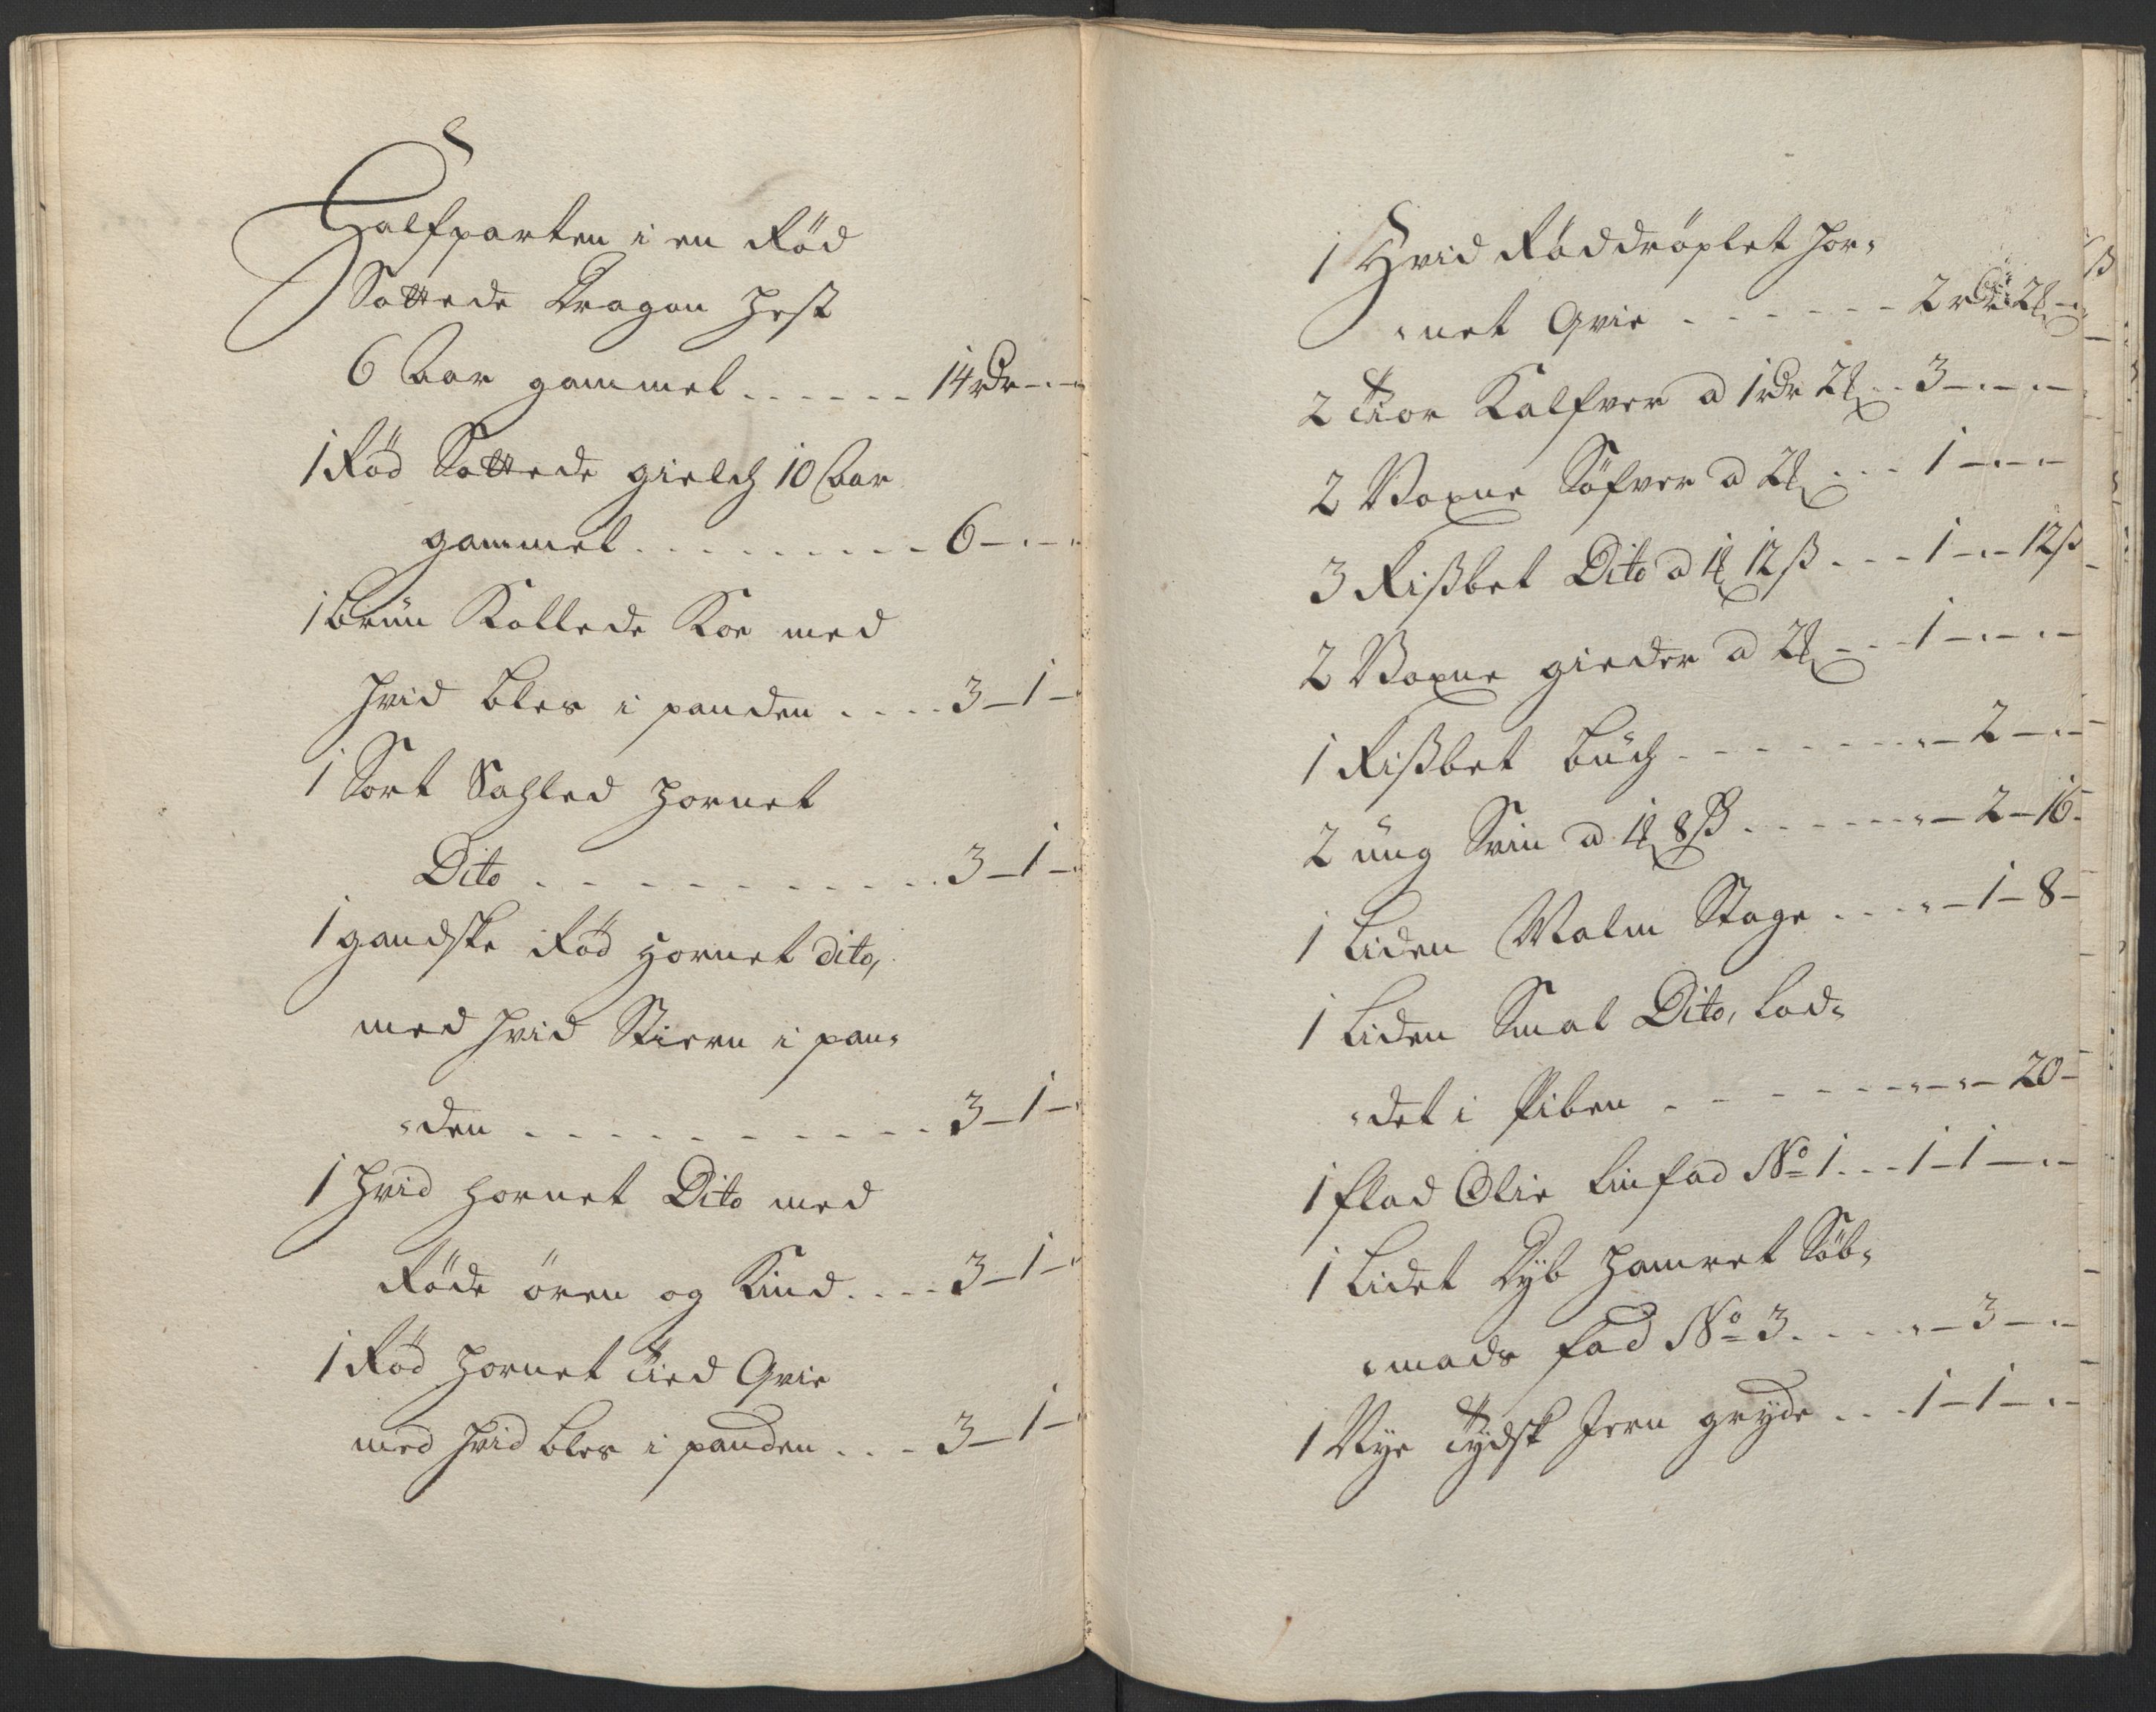 Halfparten i en Rød
Sottede Dragon Hest
6 Aar gammel . . . . . . 14 rdr - . -
1 Rød Sottede gield 10 Aar
gammel . . . . . . . . . 6 - . - .
1 Brun Kollede Koe med
hvid bles i panden . . . . 3 - 1 -
1 Sort Sahled Hornet
Dito . . . . . . . . . . 3 - 1 -
1 gandske Rød Hornet dito,
med hvid Stiern i pan-
-den . . . . . . . . . . 3 - 1 -
1 hvid hornet Dito med
Røde øren og Kind . . . . 3 - 1 -
1 Rød hornet Tied Qvie
med hvid bles i panden . . . 3 - 1 -
1 Hvid Røddröplet Hor-
-net Qvie . . . . . . 2 rdr 2
2 Fior Kalfver a 1 rdr 2 . . 3 - . - . -
2 Voxne Söfver a 2 . . . 1 - . - . -
3 Risbet Dito a 1 12 ß . . . 1 - . - 12 ß
2 Voxne gieder a 2 . . . 1 - . - . -
1 Risbet Buch . . . . . . . - 2 - . -
2 ung Svin a 1 8 ß . . . . . - 2 - 16 -
1 Liden Malm Stage . . . . - 1 - 8 -
1 Liden Smal Dito, lod-
-det i Piben . . . . . . . - . - 20 -
1 flad Olie Linfad No 1 . . . 1 - 1 - . -
1 Lidet Dyb Hamret Söb-
-mads fad No 3 . . . . . - 3 - . -
1 Nye Tydsk Jern gryde . . . 1 - 1 - . -